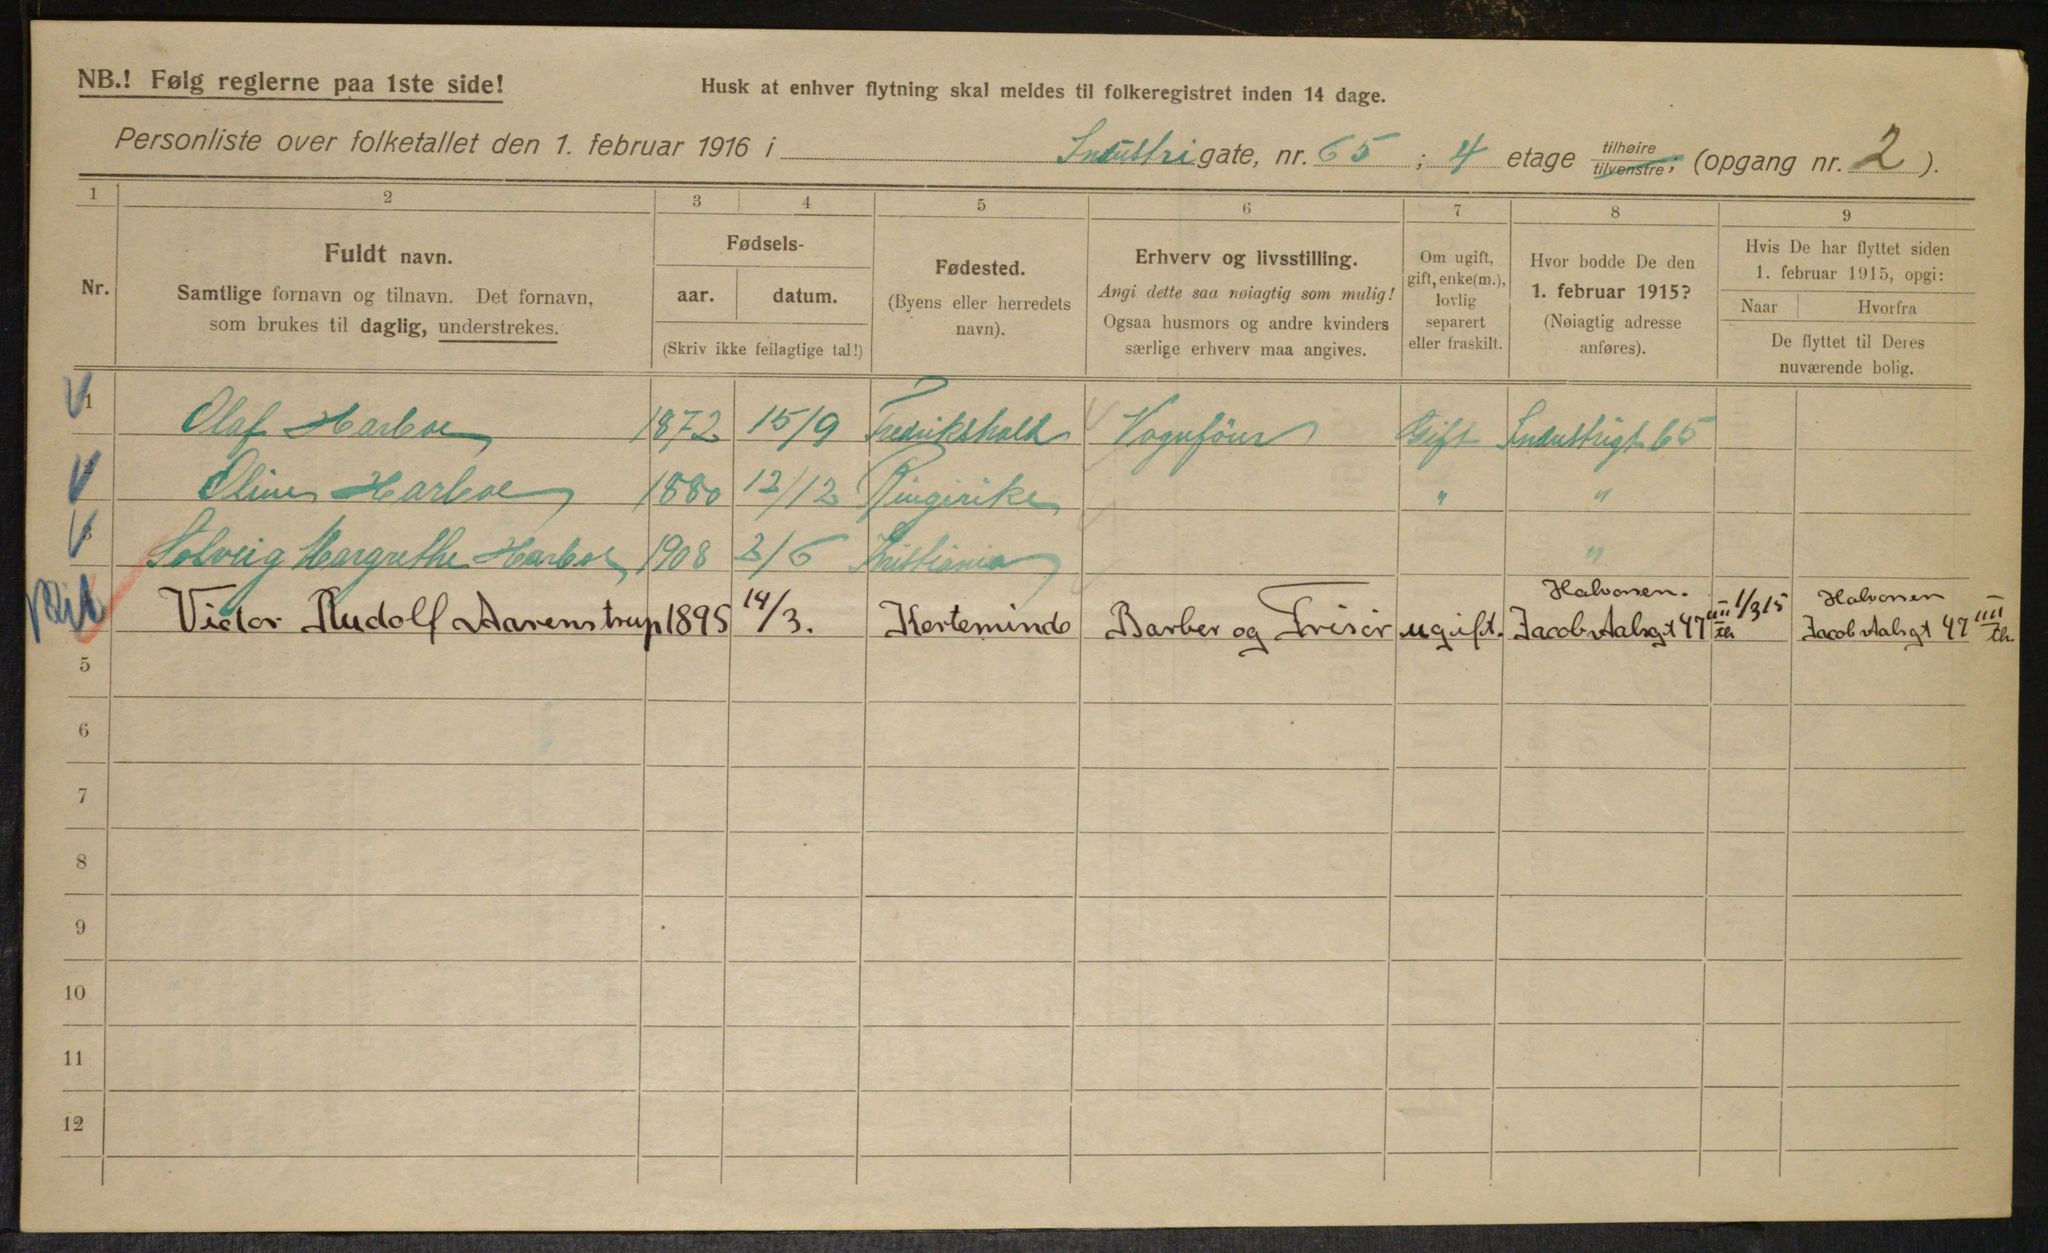 NB.! Følg reglerne paa 1ste side!
Husk at enhver flytning skal meldes til folkeregistret inden 14 dage.
Personliste over folketallet den 1. februar 1916 i Industri gate, nr. 65 ; 4 etage tilhøire tilvenstre; (opgang nr. 2 ).
1 2 3 4 5 6 7 8 9
Nr.
Fuldt navn.
Samtlige fornavn og tilnavn. Det fornavn,
som brukes til daglig, understrekes.
Fødsels-
aar. datum.
(Skriv ikke feilagtige tal!)
Fødested.
(Byens eller herredets
navn).
Erhverv og livsstilling.
Angi dette saa nøiagtig som mulig!
Ogsaa husmors og andre kvinders
særlige erhverv maa angives.
Om ugift,
gift, enke(m.),
lovlig
separert
eller fraskilt.
Hvor bodde De den
1. februar 1915?
(Nøiagtig adresse
anføres).
Hvis De har flyttet siden
1. februar 1915, opgi:
Naar Hvorfra
De flyttet til Deres
nuværende bolig.
1 Olaf Harboe 1872 15/9 Fredrikshald Vognfører Gift Industrigt 65
Oline Harboe 1880 12/12 Ringerike " "
3 Solveig Margrethe Harboe 1908 2/6 Kristiania "
Victor Rudolf Aarenstrup 1895 14/3. Kerteminde Barber og Frisør ugift. Halvorsen. Jacob Aalsgt 47 III th 1/3 15 Halvorsen Jacob Aalsgt 47 III th.
5
6
7
8
9
10
11
12